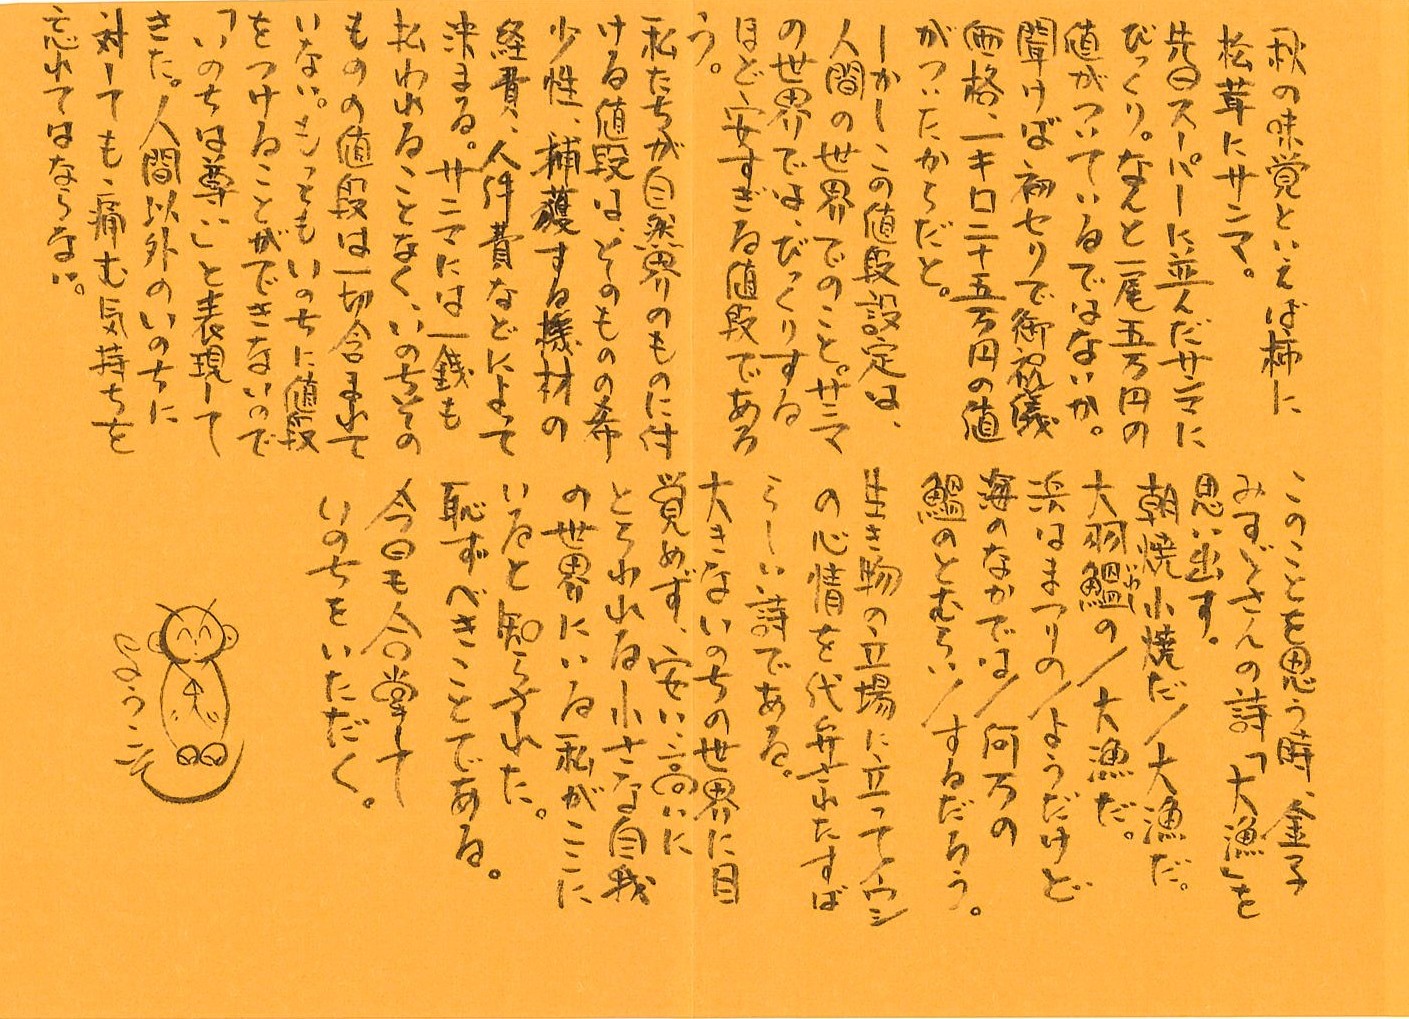 秋の味覚といえば柿に
松茸にサンマ。
先日スーパーに並んだサンマに
びっくり。なんと一尾五万円の
値がついているではないか。
聞けば初セリで御祝儀
価格、一キロ二十五万円の値
がついたからだと。
しかしこの値段設定は、
人間の世界でのこと。サンマ
の世界では、びっくりする
ほど安すぎる値段であろ
う。
私たちが自然界のものに付
ける値段は、そのものの希
少性、捕獲する機材の
経費、人件費などによって
決まる。サンマには一銭も
払われることなく、いのちその
ものの値段は一切含まれて
いない。もっともいのちに値段
をつけることができないので
「いのちは尊い」と表現して
きた。人間以外のいのちに
対しても、痛む気持ちを
忘れてはならない。
このことを思う時、金子
みすゞさんの詩「大漁」を
思い出す。
朝焼小焼だ/大漁だ。
大羽鰮の/大漁だ。
いわし
浜はまつりの/ようだけど
海のなかでは/何万の
鰮のとむらい/するだろう。
生き物の立場に立って
の心情を代弁されたすば
らしい詩である。
大きないのちの世界に目
覚めず、安い高いに
とらわれる小さな自我
の世界にいる私がここに
いると知らされた。
恥ずべきことである。
今日も合掌して
いのちをいただく。
ようこそ